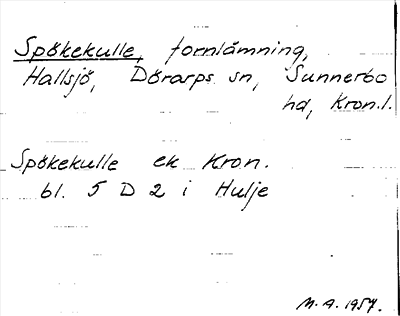 Spökekulle, fornlämning,
Hallsjö, Dörarps sn, Sunnerbo
hd, Kron.l.
Spökekulle ek Kron.
bl. 5 D 2 i Hulje
M.A. 1957.